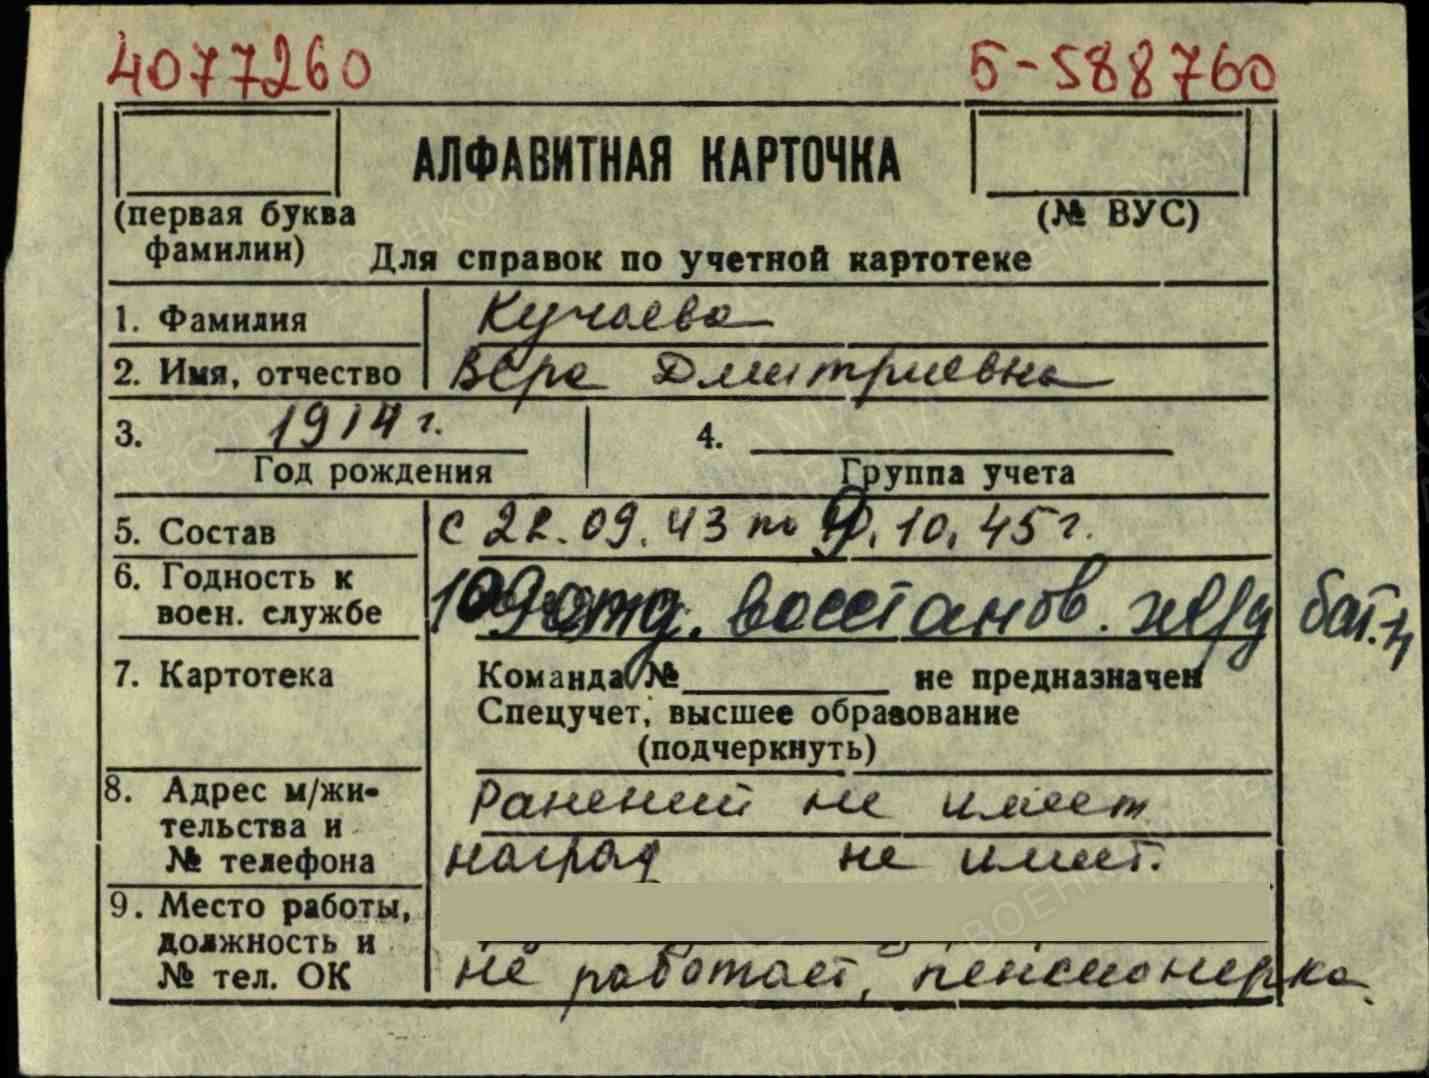 4077260 5-588760
АЛФАВИТНАЯ КАРТОЧКА
(первая буква (№ ВУС)
фамилии)
Для справок по учетной картотеке
1. Фамилия Кучаева
2. Имя, отчество Вера Дмитриевна
3. 1914 г. 4.
Год рождения Группа учета
5. Состав с 22.09.43 по 9.10.45 г.
6. Годность к
воен. службе 109 отд. восстанов. ж/д бат-н
7. Картотека Команда № не предназначен
Спецучет, высшее образование
(подчеркнуть)
8. Адрес м/жи- Ранений не имеет
тельства и
№ телефона наград не имеет.
9. Место работы,
должность и
№ тел. ОК не работает, пенсионерка